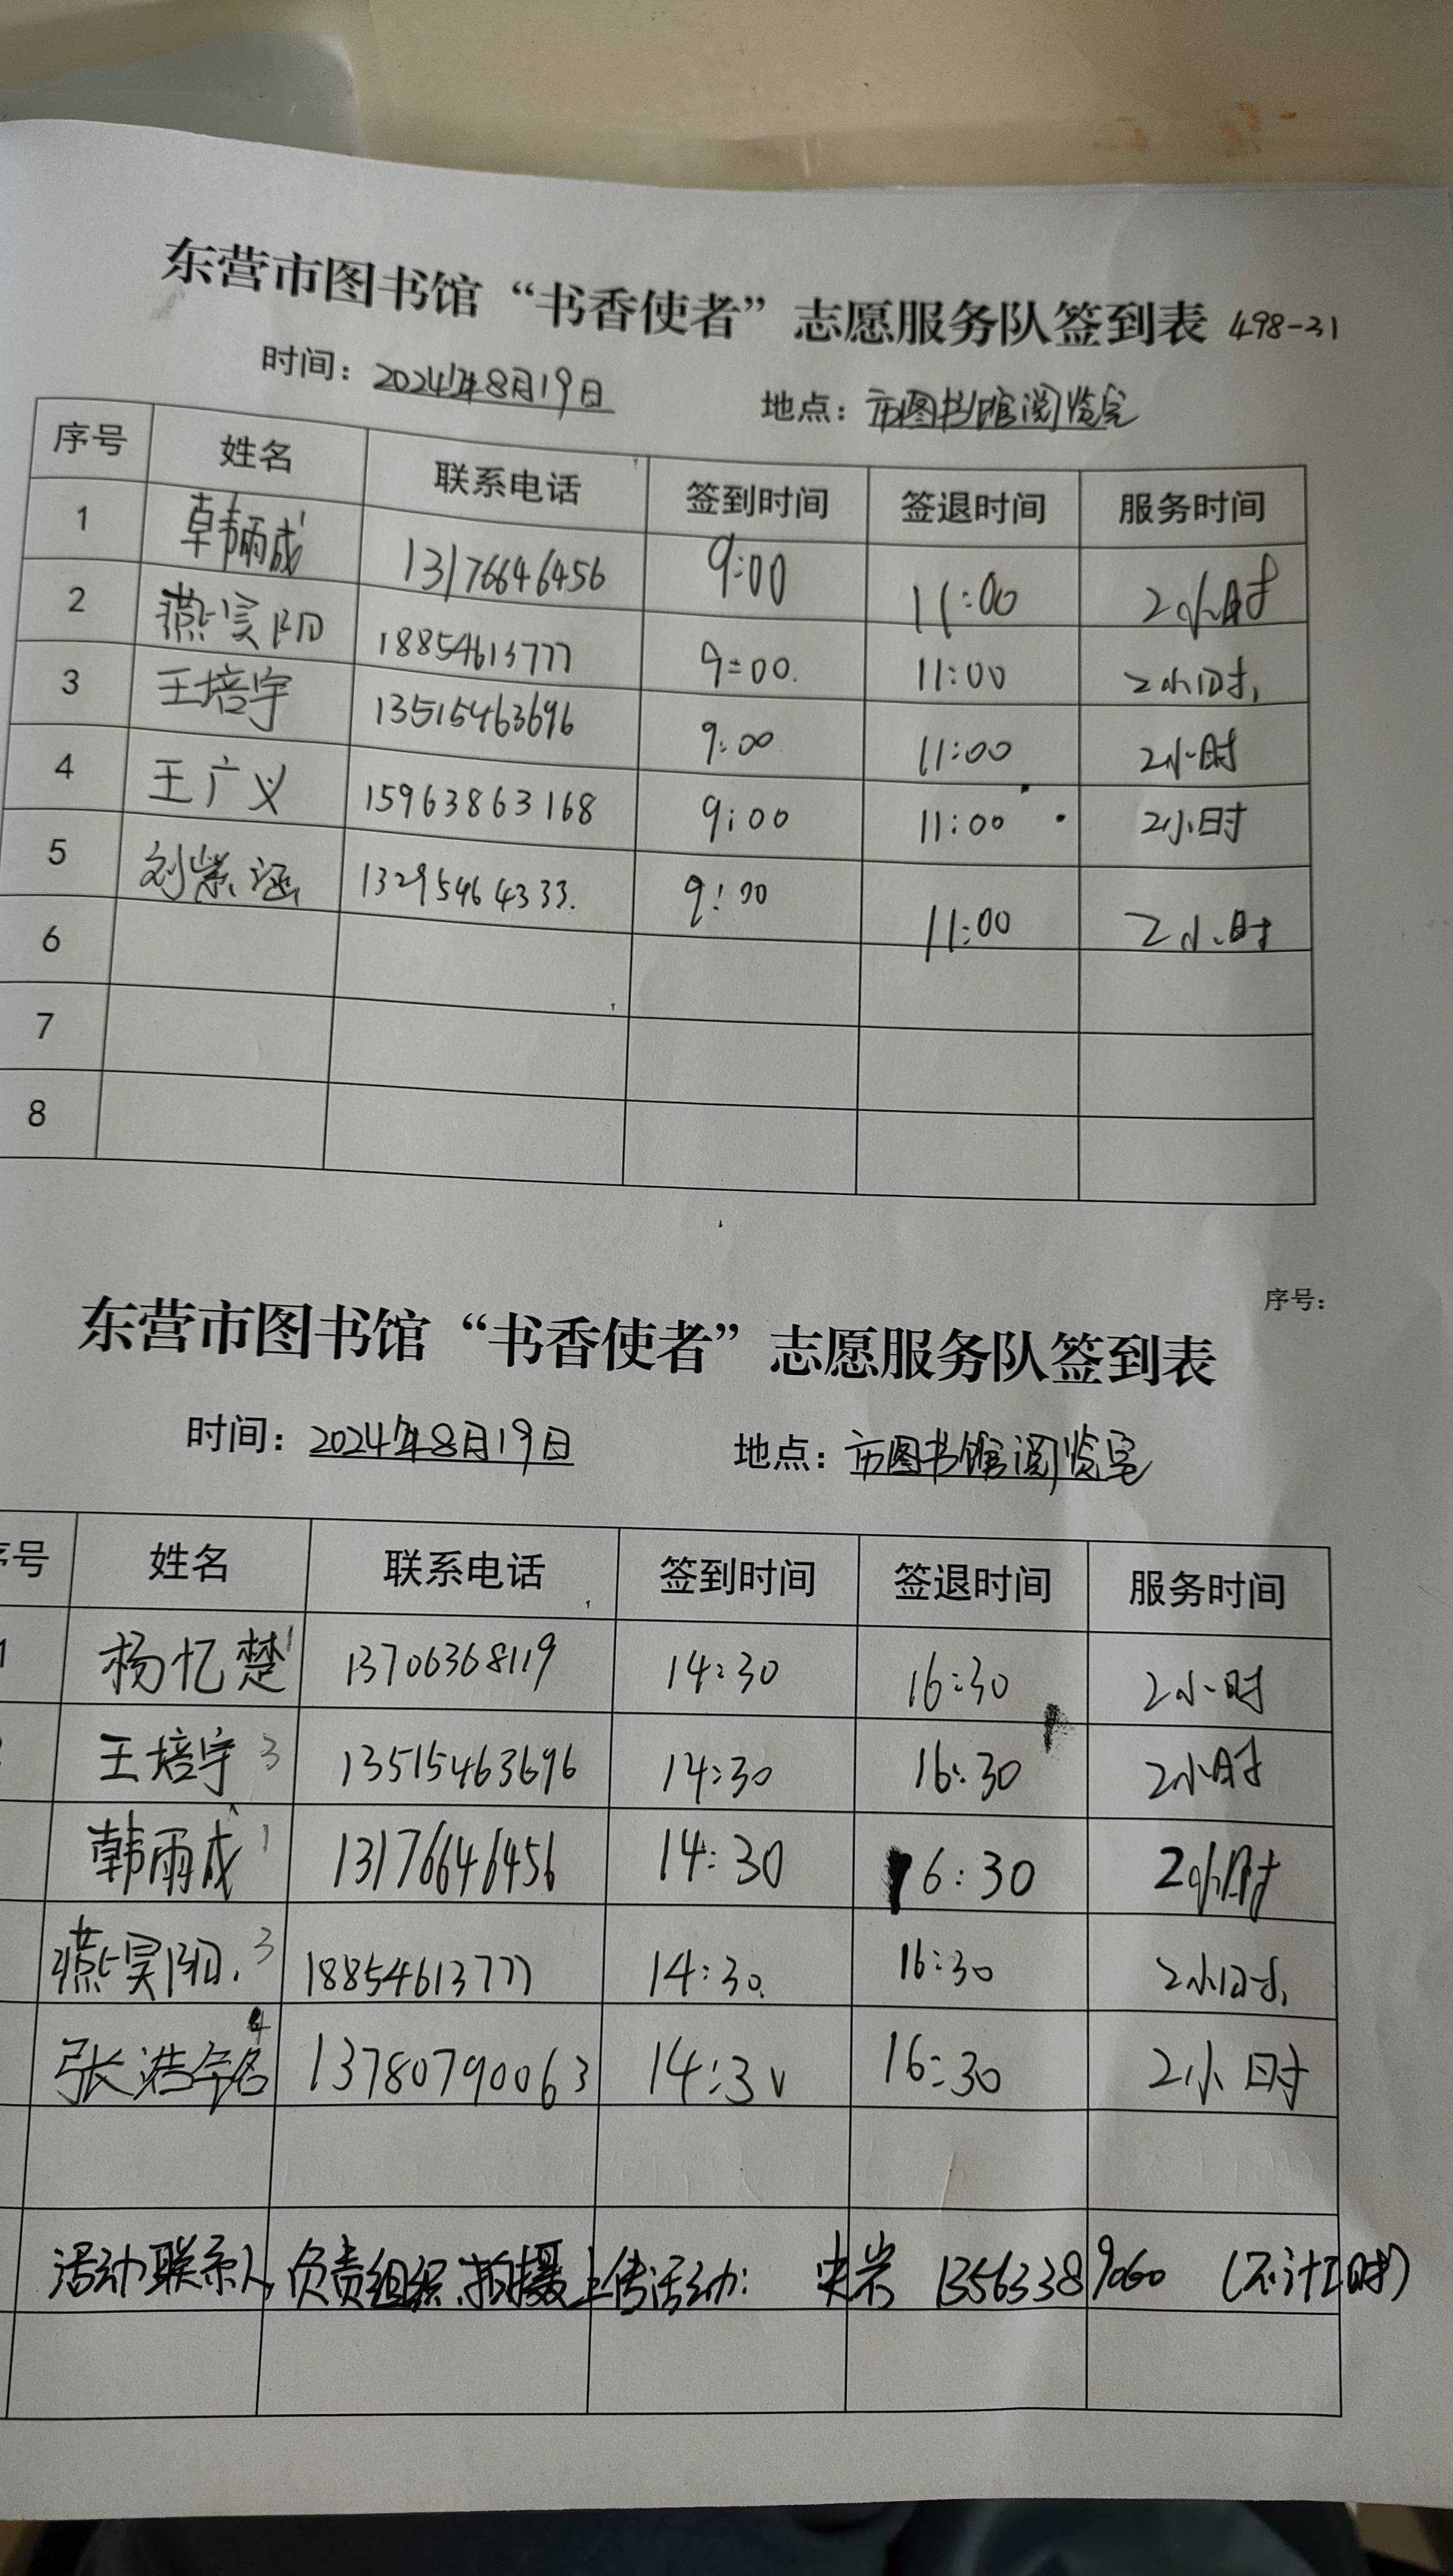 东营市图书馆“书香使者”志愿服务队签到表 498-31
时间：2024年8月19日 地点：市图书馆阅览室
序号 姓名 联系电话 签到时间 签退时间 服务时间
1 韩雨成 13176646456 9:00 11:00 2小时
2 燕昊阳 18854613777 9:00. 11:00 2小时.
3 王培宇 13515463696 9:00 11:00 2小时
4 王广义 15963863168 9:00 11:00 2小时
5 刘紫涵 13295464333. 9:00 11:00 2小时
6
7
8
序号：
东营市图书馆“书香使者”志愿服务队签到表
时间：2024年8月19日 地点：市图书馆阅览室
序号 姓名 联系电话 签到时间 签退时间 服务时间
1 杨忆楚 1 13706368119 14:30 16:30 2小时
王培宇 3 13515463696 14:30 16:30 2小时
韩雨成 1 13176646456 14:30 16:30 2小时
燕昊阳. 3 18854613777 14:30. 16:30 2小时.
张浩铭 4 13780790063 14:30 16:30 2小时
活动联系人,负责组织、拍摄上传活动： 13563389060 （不计工时）